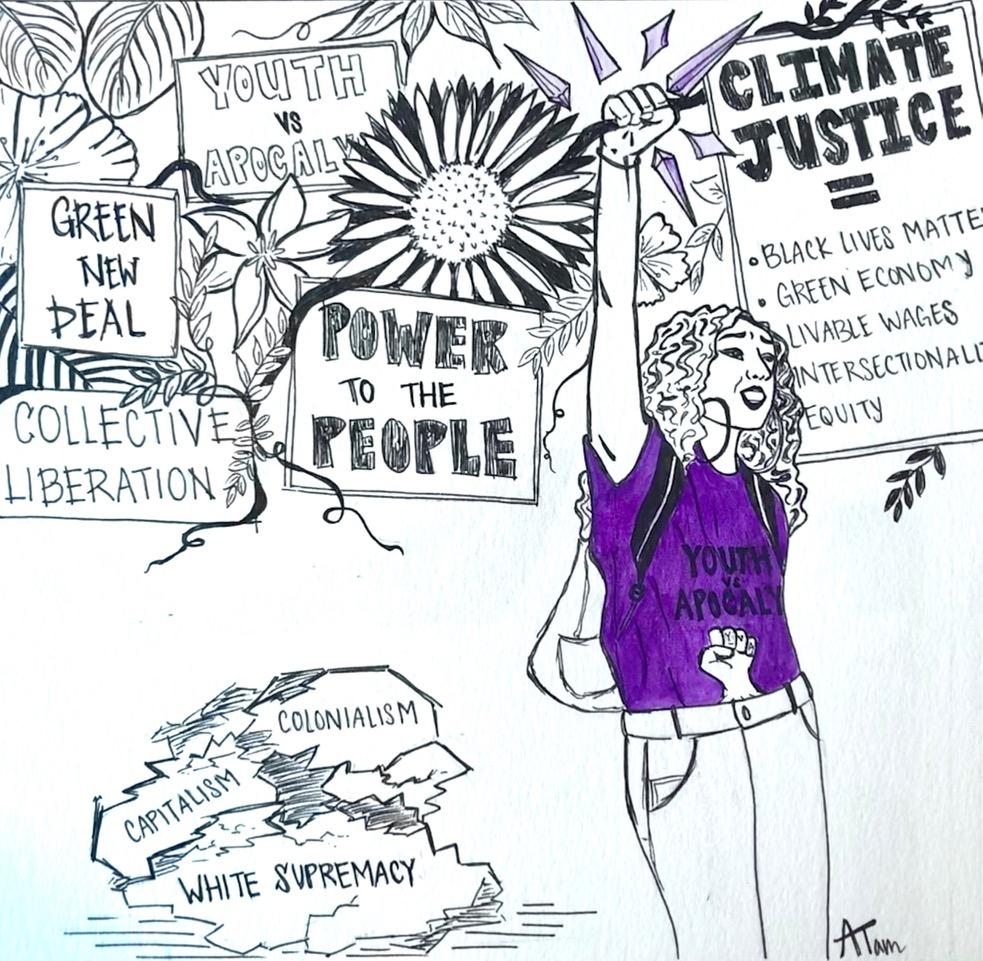 YOUTH
VS
APOCALY
GREEN
NEW
DEAL
COLLECTIVE
LIBERATION
POWER
TO THE
PEOPLE
CLIMATE
JUSTICE
=
• BLACK LIVES MATTE
• GREEN ECONOMY
LIVABLE WAGES
INTERSECTIONALI
EQUITY
YOUTH
VS
APOCALY
YVA
COLONIALISM
CAPITALISM
WHITE SUPREMACY
ATam